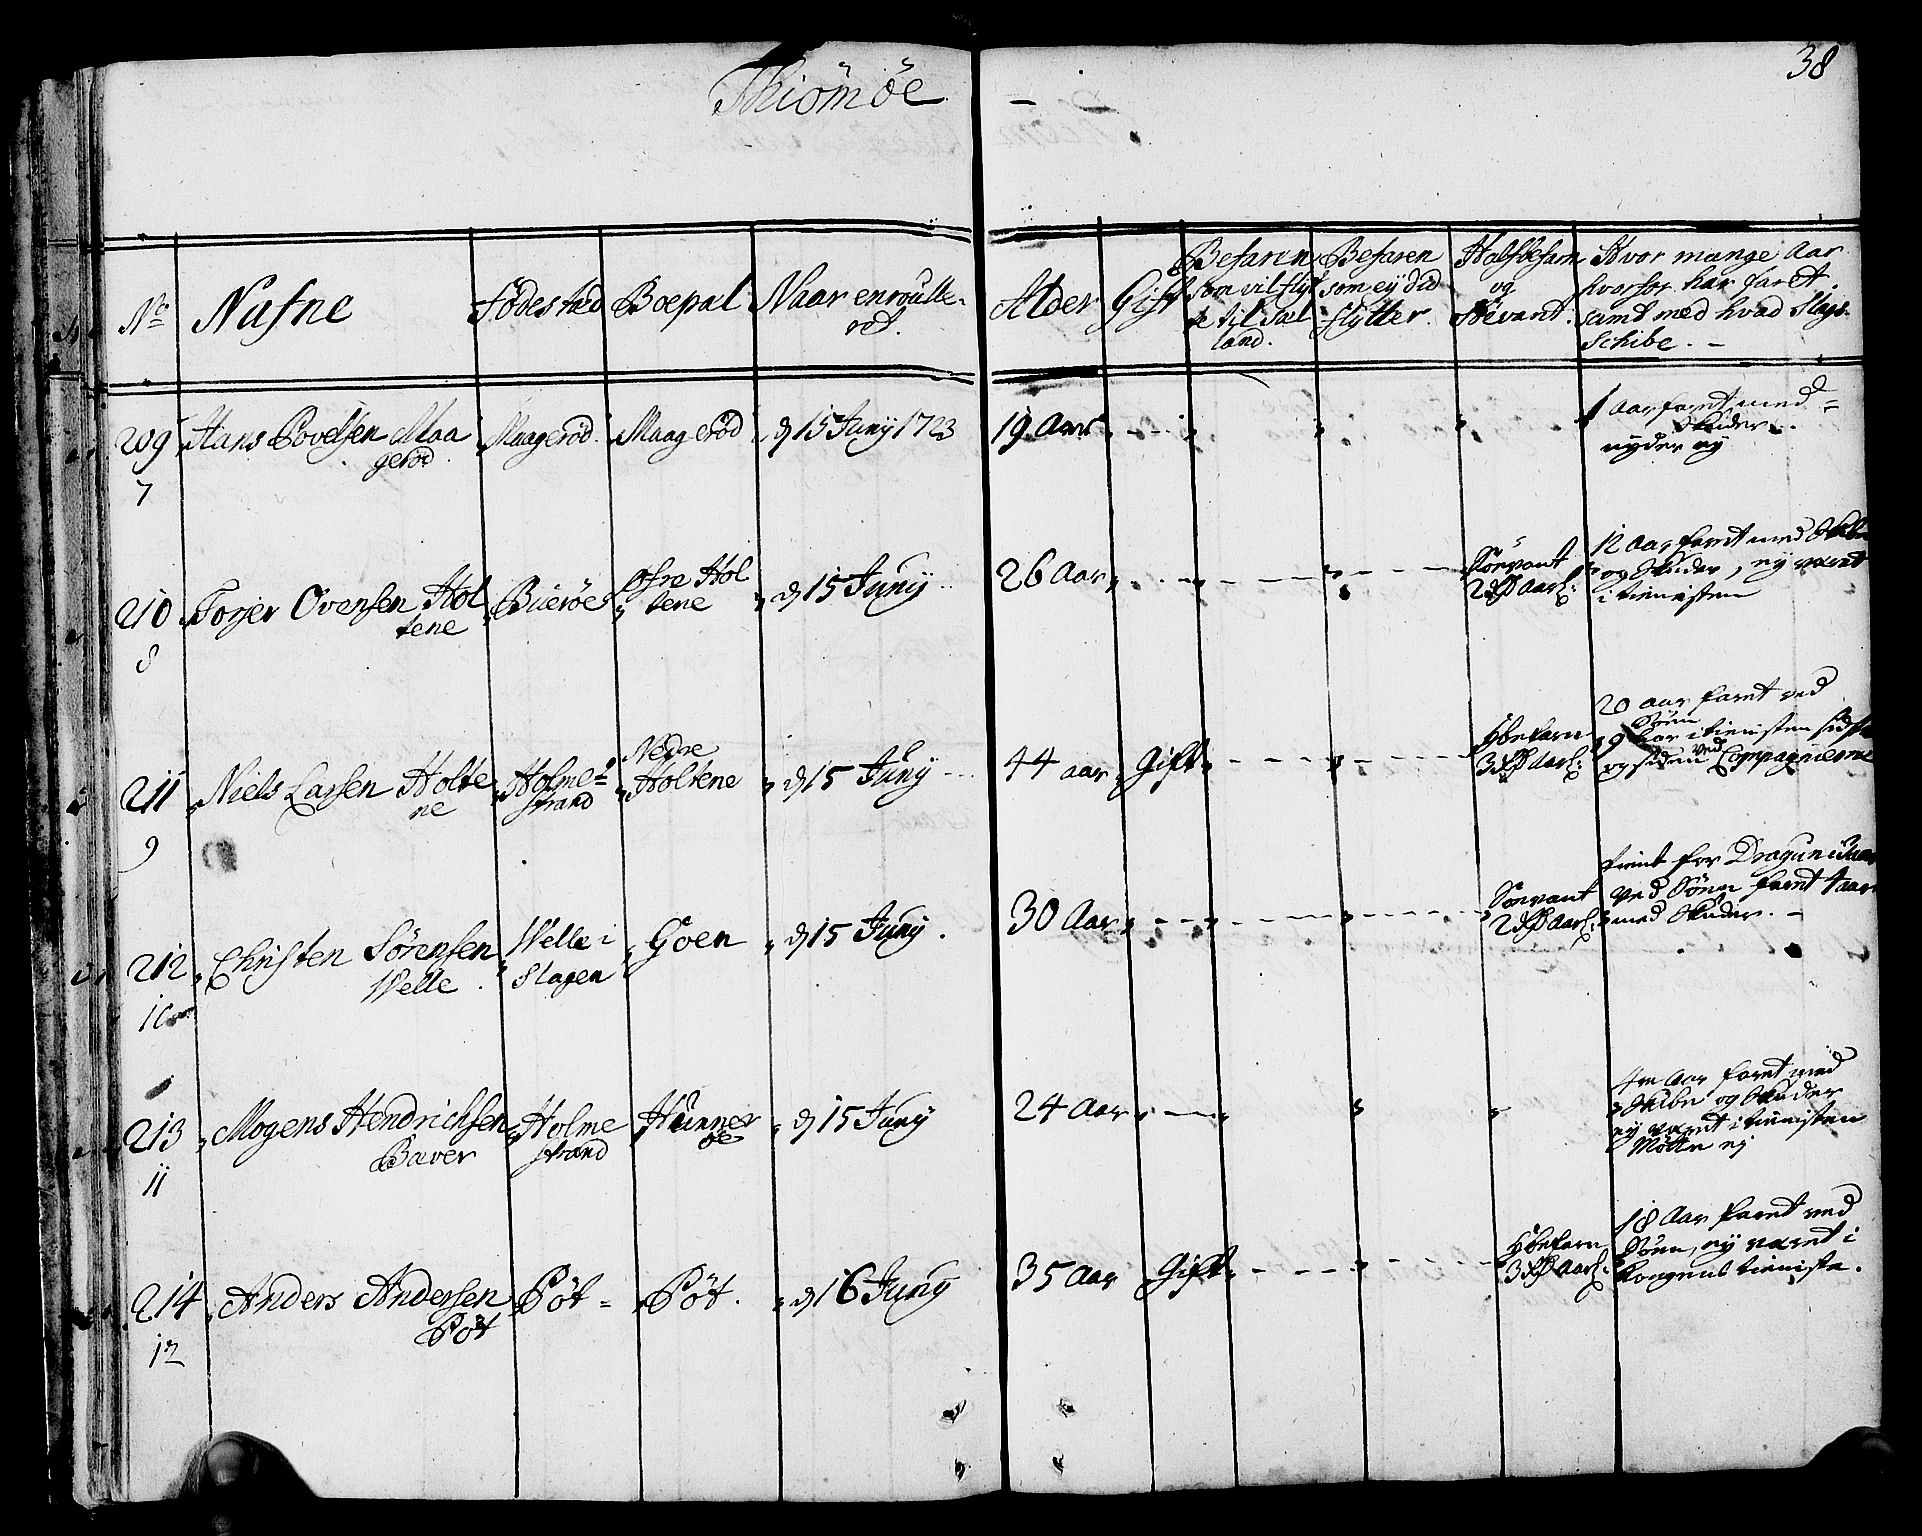 Thiömöe
38
No Nafne Födestæd Boepæl Naar enroulle-
ret.
Alder Gift
Befaren
som vil flyt
te til Sæl
land.
Befaren
som ey did
flytter.
Halfbefarn
og
Sövant.
Hvor mange Aar
hvorfor har faret
samt med hvad Slags
Schibe. -
209 Hans Povelsen Maa
gerød Maagerød Maagerød d 15 Juny 1723 19 Aar
1 aar faret med
Skuder.
nyder ey
7
210 Torjer Ovensen Hol
tene Bierøe Øfre Hol
tene d 15 Juny 26 Aar
Söevant
2 aarl:
12 Aar faret med Skibe
og Skuder, ey været
i tienisten
8
211 Niels Larsen Holte
ne Holme-
strand Nedre
Holtene d 15 Juny 44 aar Gift
Hbefarn
3 aarl:
20 aar faret ved
Söen
9 aar i tienisten sidste
og siden ved Compagnierne
9
212 Christen Sørensen
Welle Welle i
Slagen Goen d 15 Juny. 30 Aar
Söevant
2 aarl:
tient for Dragun
ved Söen faret 1 aar
med Skuder. -
10
213 Mogens Hendrichsen
Baver Holme
strand Hunner
öe d 15 Juny 24 Aar
4re Aar faret med
Skibe og Skuder
ey været i tienisten
Mötte ej
11
214 Anders Andersen
Pöt Pöt Pöt. d 16 Juny 35 Aar Gift
Hbefarn
3 aarl:
18 Aar faret ved
Söen, ey været i
Kongens tieniste.
12